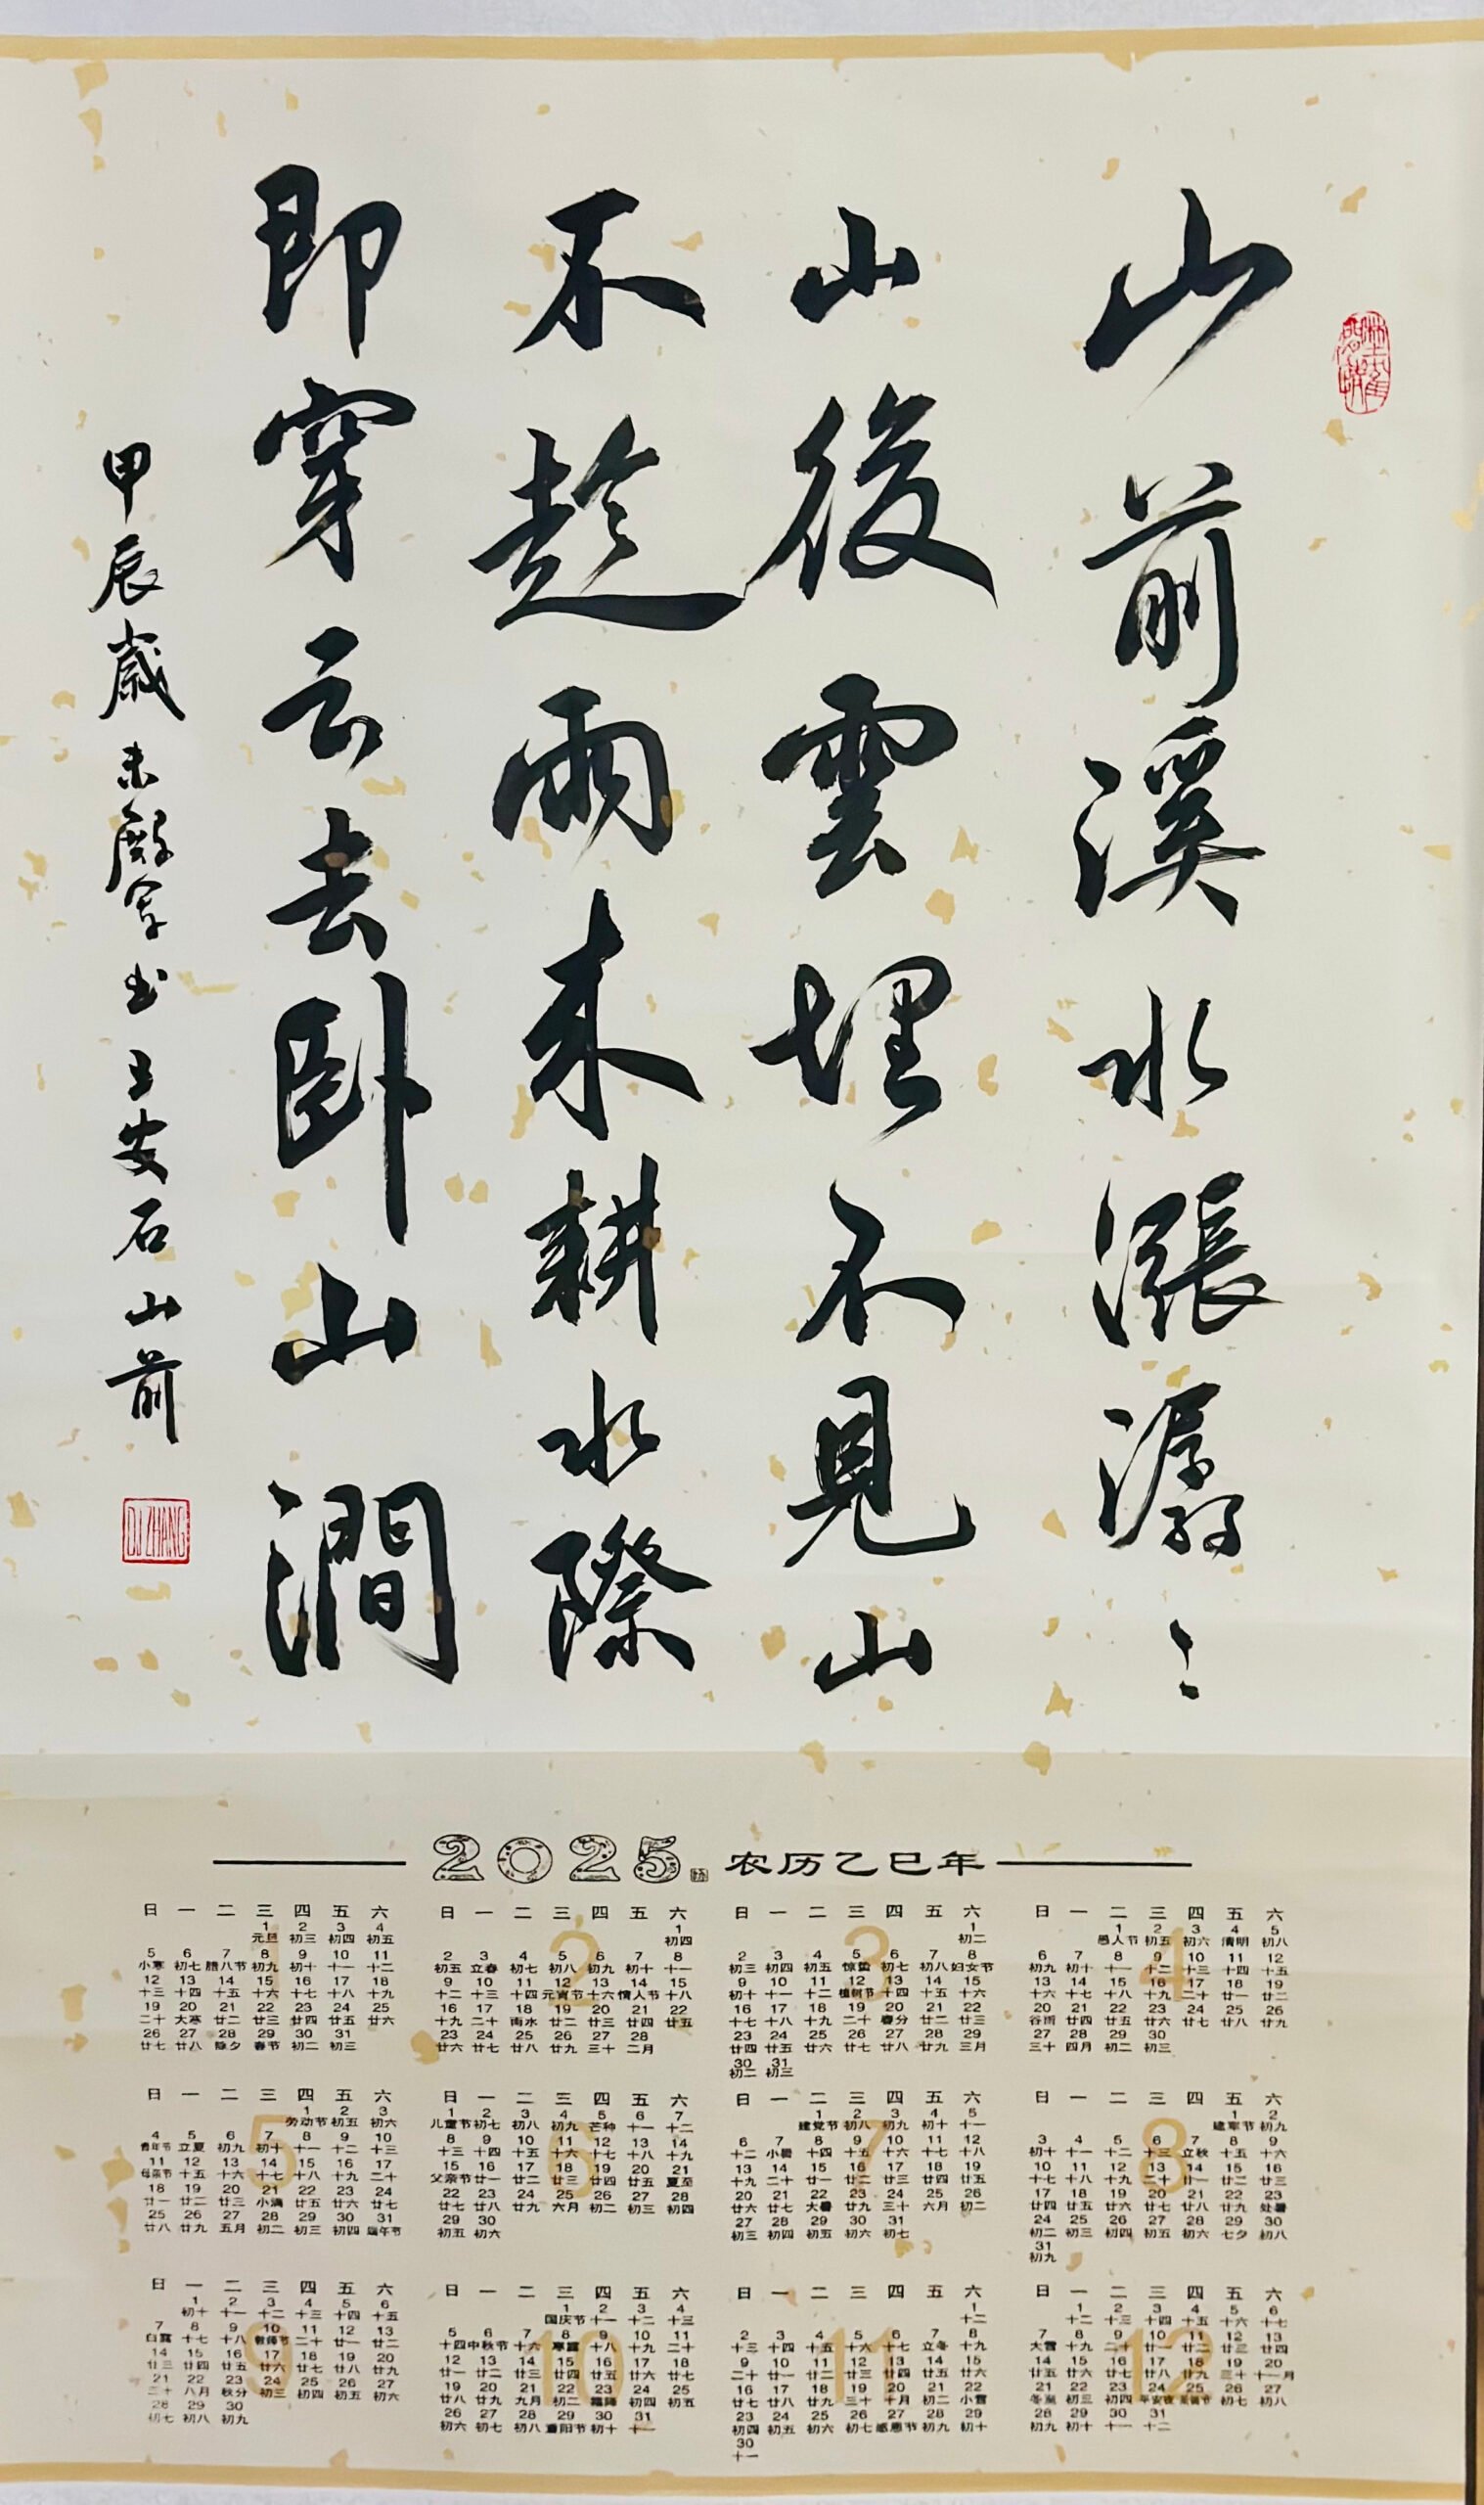 山前溪水漲潺〻
山後雲埋不見山
不趁雨来耕水際
即穿云去卧山澗
甲辰歲末殿军书王安石山前
DJZHANG
2025 农历乙巳年
1
日 一 二 三 四 五 六
1 2 3 4
元旦 初三 初四 初五
5 6 7 8 9 10 11
小寒 初七 腊八节 初九 初十 十一 十二
12 13 14 15 16 17 18
十三 十四 十五 十六 十七 十八 十九
19 20 21 22 23 24 25
二十 大寒 廿二 廿三 廿四 廿五 廿六
26 27 28 29 30 31
廿七 廿八 除夕 春节 初二 初三
2
日 一 二 三 四 五 六
1
初四
2 3 4 5 6 7 8
初五 立春 初七 初八 初九 初十 十一
9 10 11 12 13 14 15
十二 十三 十四 元宵节 十六 情人节 十八
16 17 18 19 20 21 22
十九 二十 雨水 廿二 廿三 廿四 廿五
23 24 25 26 27 28
廿六 廿七 廿八 廿九 三十 二月
3
日 一 二 三 四 五 六
1
初二
2 3 4 5 6 7 8
初三 初四 初五 惊蛰 初七 初八 妇女节
9 10 11 12 13 14 15
初十 十一 十二 植树节 十四 十五 十六
16 17 18 19 20 21 22
十七 十八 十九 二十 春分 廿二 廿三
23 24 25 26 27 28 29
廿四 廿五 廿六 廿七 廿八 廿九 三月
30 31
初二 初三
4
日 一 二 三 四 五 六
1 2 3 4 5
愚人节 初五 初六 清明 初八
6 7 8 9 10 11 12
初九 初十 十一 十二 十三 十四 十五
13 14 15 16 17 18 19
十六 十七 十八 十九 二十 廿一 廿二
20 21 22 23 24 25 26
谷雨 廿四 廿五 廿六 廿七 廿八 廿九
27 28 29 30
三十 四月 初二 初三
5
日 一 二 三 四 五 六
1 2 3
劳动节 初五 初六
4 5 6 7 8 9 10
青年节 立夏 初九 初十 十一 十二 十三
11 12 13 14 15 16 17
母亲节 十五 十六 十七 十八 十九 二十
18 19 20 21 22 23 24
廿一 廿二 廿三 小满 廿五 廿六 廿七
25 26 27 28 29 30 31
廿八 廿九 五月 初二 初三 初四 端午节
6
日 一 二 三 四 五 六
1 2 3 4 5 6 7
儿童节 初七 初八 初九 芒种 十一 十二
8 9 10 11 12 13 14
十三 十四 十五 十六 十七 十八 十九
15 16 17 18 19 20 21
父亲节 廿一 廿二 廿三 廿四 廿五 夏至
22 23 24 25 26 27 28
廿七 廿八 廿九 六月 初二 初三 初四
29 30
初五 初六
7
日 一 二 三 四 五 六
1 2 3 4 5
建党节 初八 初九 初十 十一
6 7 8 9 10 11 12
十二 小暑 十四 十五 十六 十七 十八
13 14 15 16 17 18 19
十九 二十 廿一 廿二 廿三 廿四 廿五
20 21 22 23 24 25 26
廿六 廿七 大暑 廿九 三十 六月 初二
27 28 29 30 31
初三 初四 初五 初六 初七
8
日 一 二 三 四 五 六
1 2
建军节 初九
3 4 5 6 7 8 9
初十 十一 十二 十三 立秋 十五 十六
10 11 12 13 14 15 16
十七 十八 十九 二十 廿一 廿二 廿三
17 18 19 20 21 22 23
廿四 廿五 廿六 廿七 廿八 廿九 处暑
24 25 26 27 28 29 30
初二 初三 初四 初五 初六 七夕 初八
31
初九
9
日 一 二 三 四 五 六
1 2 3 4 5 6
初十 十一 十二 十三 十四 十五
7 8 9 10 11 12 13
白露 十七 十八 教师节 二十 廿一 廿二
14 15 16 17 18 19 20
廿三 廿四 廿五 廿六 廿七 廿八 廿九
21 22 23 24 25 26 27
三十 八月 秋分 初三 初四 初五 初六
28 29 30
初七 初八 初九
10
日 一 二 三 四 五 六
1 2 3 4
国庆节 十一 十二 十三
5 6 7 8 9 10 11
十四 中秋节 十六 寒露 十八 十九 二十
12 13 14 15 16 17 18
廿一 廿二 廿三 廿四 廿五 廿六 廿七
19 20 21 22 23 24 25
廿八 廿九 九月 初二 霜降 初四 初五
26 27 28 29 30 31
初六 初七 初八 重阳节 初十 十一
11
日 一 二 三 四 五 六
1
十二
2 3 4 5 6 7 8
十三 十四 十五 十六 十七 立冬 十九
9 10 11 12 13 14 15
二十 廿一 廿二 廿三 廿四 廿五 廿六
16 17 18 19 20 21 22
廿七 廿八 廿九 三十 十月 初二 小雪
23 24 25 26 27 28 29
初四 初五 初六 初七 感恩节 初九 初十
30
十一
12
日 一 二 三 四 五 六
1 2 3 4 5 6
十二 十三 十四 十五 十六 十七
7 8 9 10 11 12 13
大雪 十九 二十 廿一 廿二 廿三 廿四
14 15 16 17 18 19 20
廿五 廿六 廿七 廿八 廿九 三十 十一月
21 22 23 24 25 26 27
冬至 初三 初四 平安夜 圣诞节 初七 初八
28 29 30 31
初九 初十 十一 十二